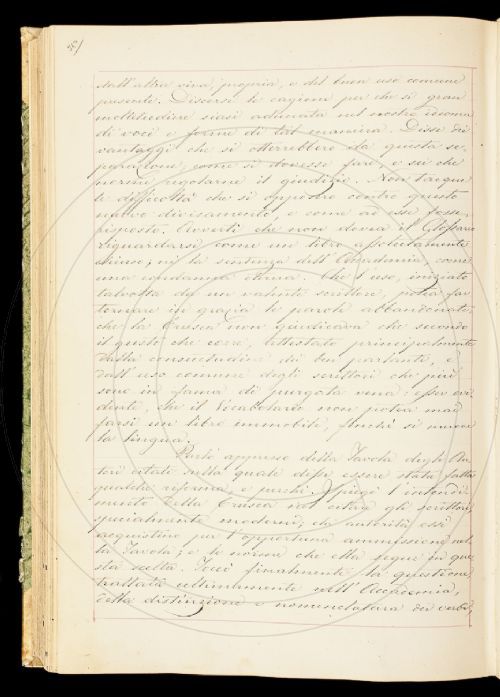 dall'altra viva, propria, e del buon uso comune
presente. Discorsi le cagioni per che sì gran
moltitudine siasi adunata nel nostro idioma
di voci e forme di tal maniera. Disse dei
vantaggi che si otterrebbero da questa se-
parazione, come si dovesse fare, e su che
norme regolarne il giudizio. Non tacque
le difficoltà che si opposero contro questo
nuovo divisamento, e come ad esse fosse
risposto. Avvertì che non dovea il Glossario
riguardarsi come un libro assolutamente
chiuso; nè la sentenza dell'Accademia come
una condanna eterna. Che l'uso, iniziato
talvolta da un valente scrittore, potea far
tornare in grazia le parole abbandonate:
che la Crusca non giudicava che secondo
il gusto che corre, attestato principalmente
dalla consuetudine dei ben parlanti, e
dall'uso comune degli scrittori che più
sono in fama di purgata vena: esser evi-
dente, che il Vocabolario non potea mai
farsi un libro immobile, finchè si muove
la lingua.
Parlò appresso della Tavola degli Au-
tori citati nella quale disse essere stata fatta
qualche riforma, e perchè. Spiegò l'intendi-
mento della Crusca nel citare gli scrittori
specialmente moderni; che autorità essi
acquistino per l'opportuna ammissione nel-
la Tavola; e le norme che ella segue in que-
sta scelta. Toccò finalmente la questione
trattata ultimamente nell'Accademia,
della distinzione e nomenclatura dei verbi